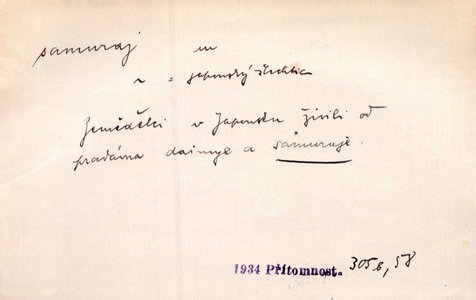 samuraj m
~ = japonský šlechtic
Zemědělci v Japonsku živili od
pradávna daimye a samuraje.
1934 Přítomnost. 305b, 58